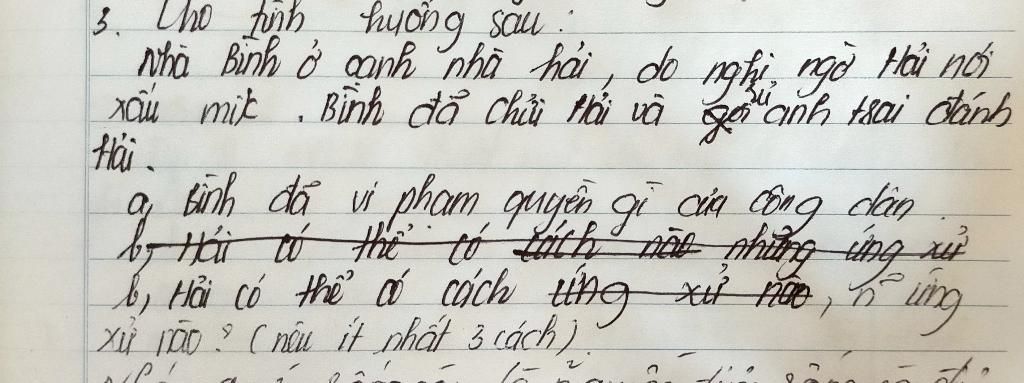 3. Cho tình huống sau :
Nhà Bình ở oanh nhà hải, do nghi ngờ Hải nói
xấu mik. Bình đã chửi Hải và xúi anh trai đánh
Hải.
a, Bình đã vi phạm quyền gì của công dân.
b, Hải có thể có cách nào những ứng xử
b, Hải có thể có cách ứng xử nào, n~ ứng
xử nào? (nêu ít nhất 3 cách)